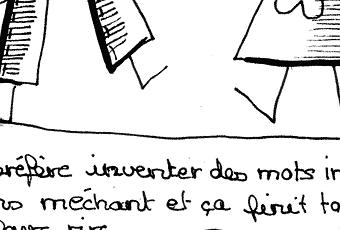 préfère inventer des mots in
ns méchant et ça finit to